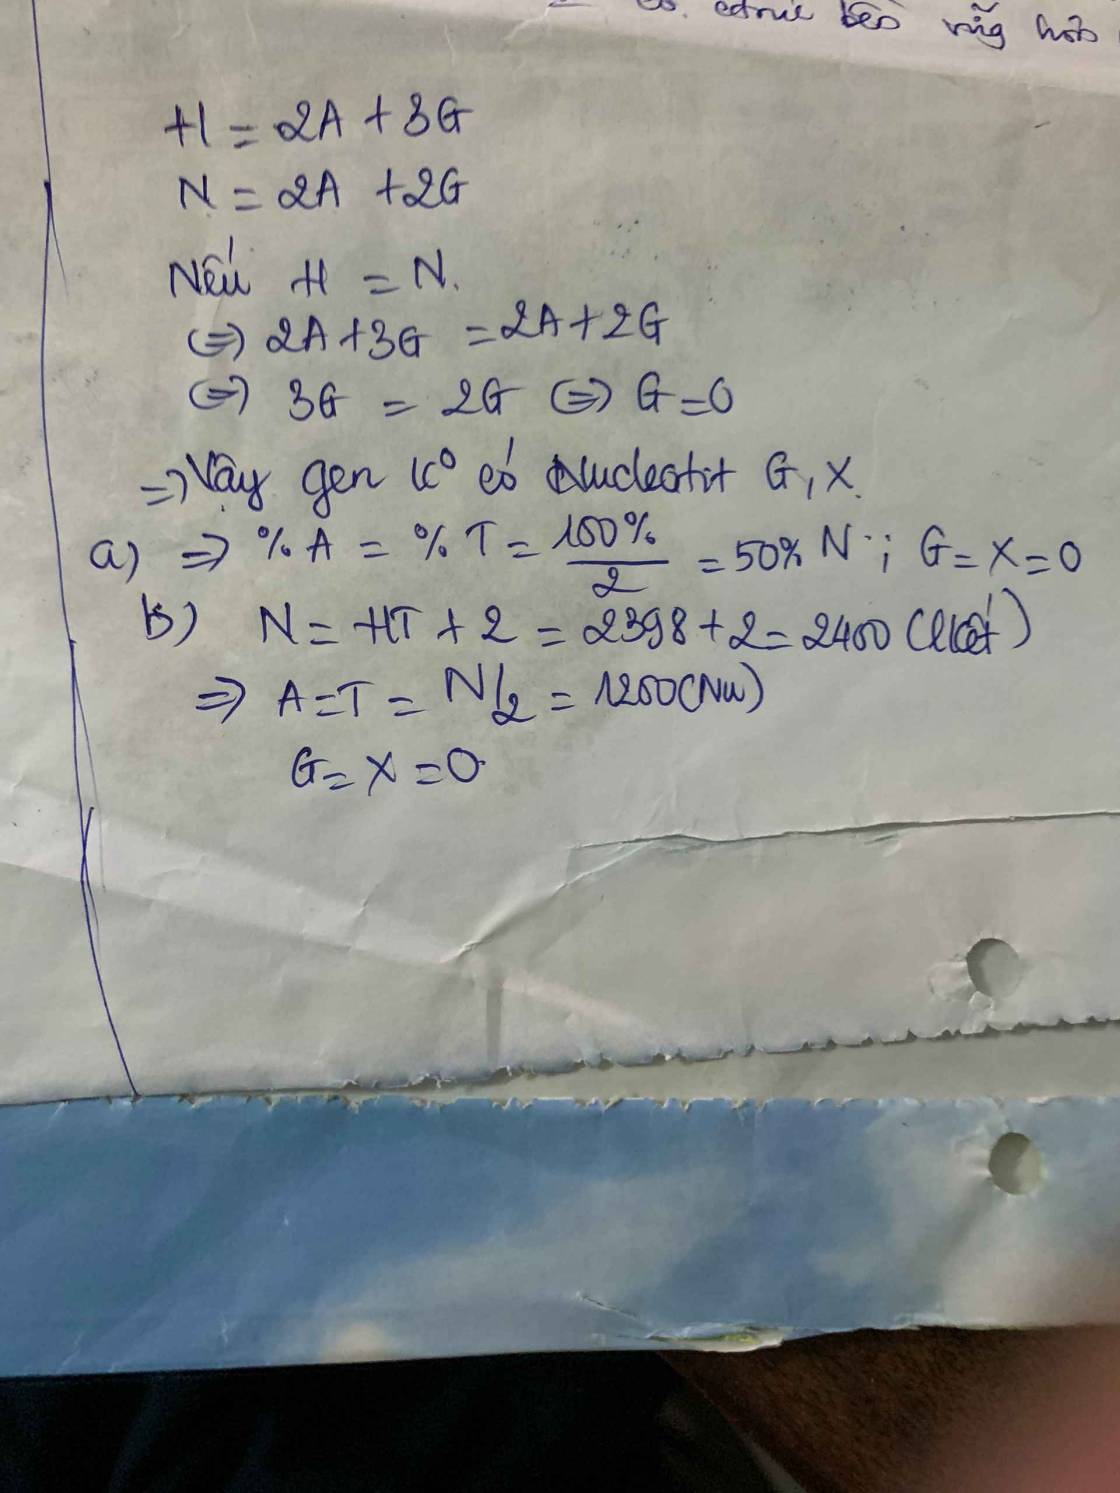 có cấu trúc bền vững hơn
H = 2A + 3G
N = 2A + 2G
Nếu H = N.
(=) 2A + 3G = 2A + 2G
(=) 3G = 2G (=) G = 0
=) Vậy gen k° có Nucleotit G, X.
a) => % A = % T = 100% / 2 = 50% N ; G = X = 0
b) N = HT + 2 = 2398 + 2 = 2400 (lkết)
=> A = T = N/2 = 1200 (Nu)
G = X = 0